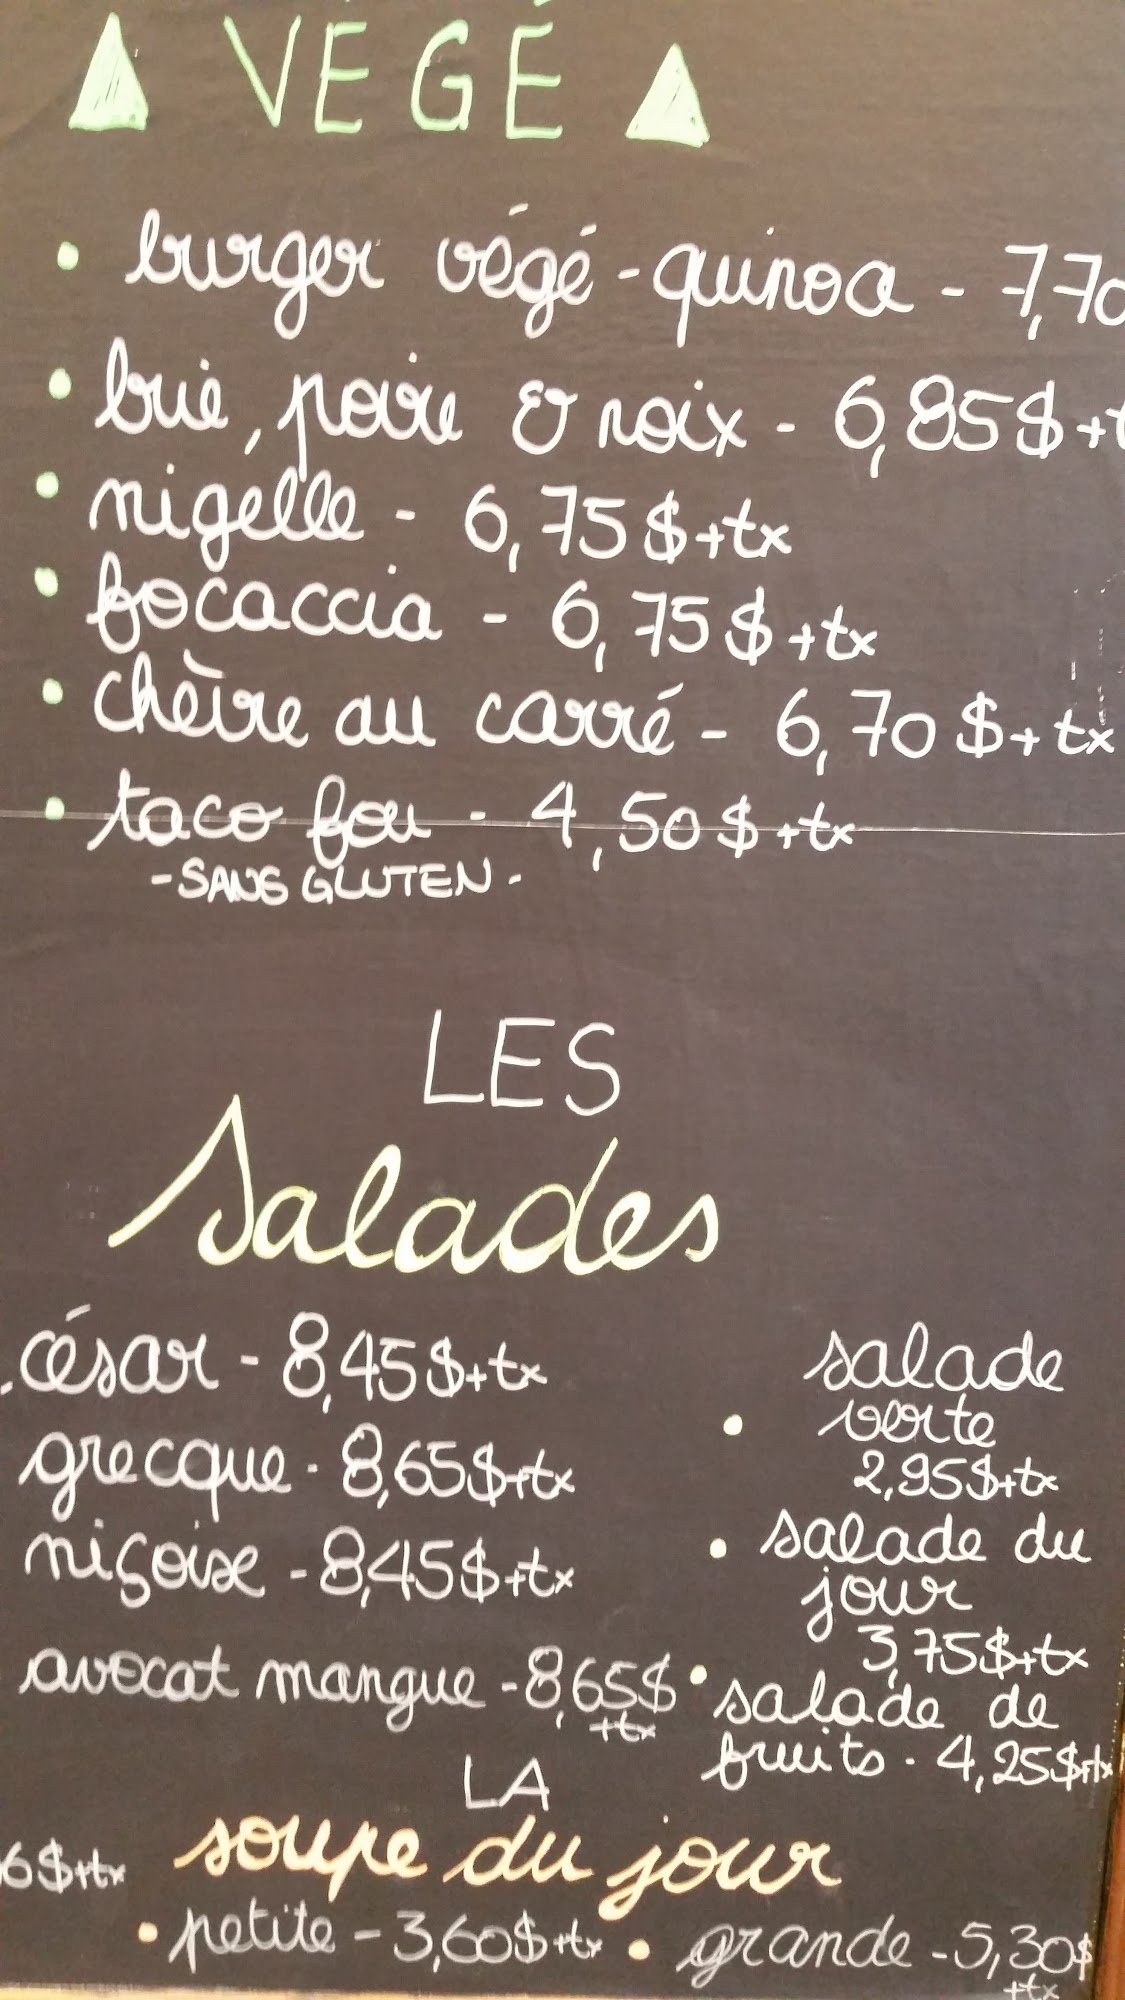 VÉGÉ
• burger végé - quinoa - 7,70
• brie, poire & noix - 6,85$+t
• nigelle - 6,75$+tx
• focaccia - 6,75$+tx
• chèvre au carré - 6,70$+tx
• taco fou - 4,50$+tx
- SANS GLUTEN -
LES
Salades
. césar - 8,45$+tx
grecque - 8,65$+tx
niçoise - 8,45$+tx
avocat mangue - 8,65$
+tx
salade
• verte
2,95$+tx
• salade du
jour
3,75$+tx
• salade de
fruits - 4,25$+tx
LA
soupe du jour
6$+tx
• petite - 3,60$+tx • grande - 5,30$
+tx